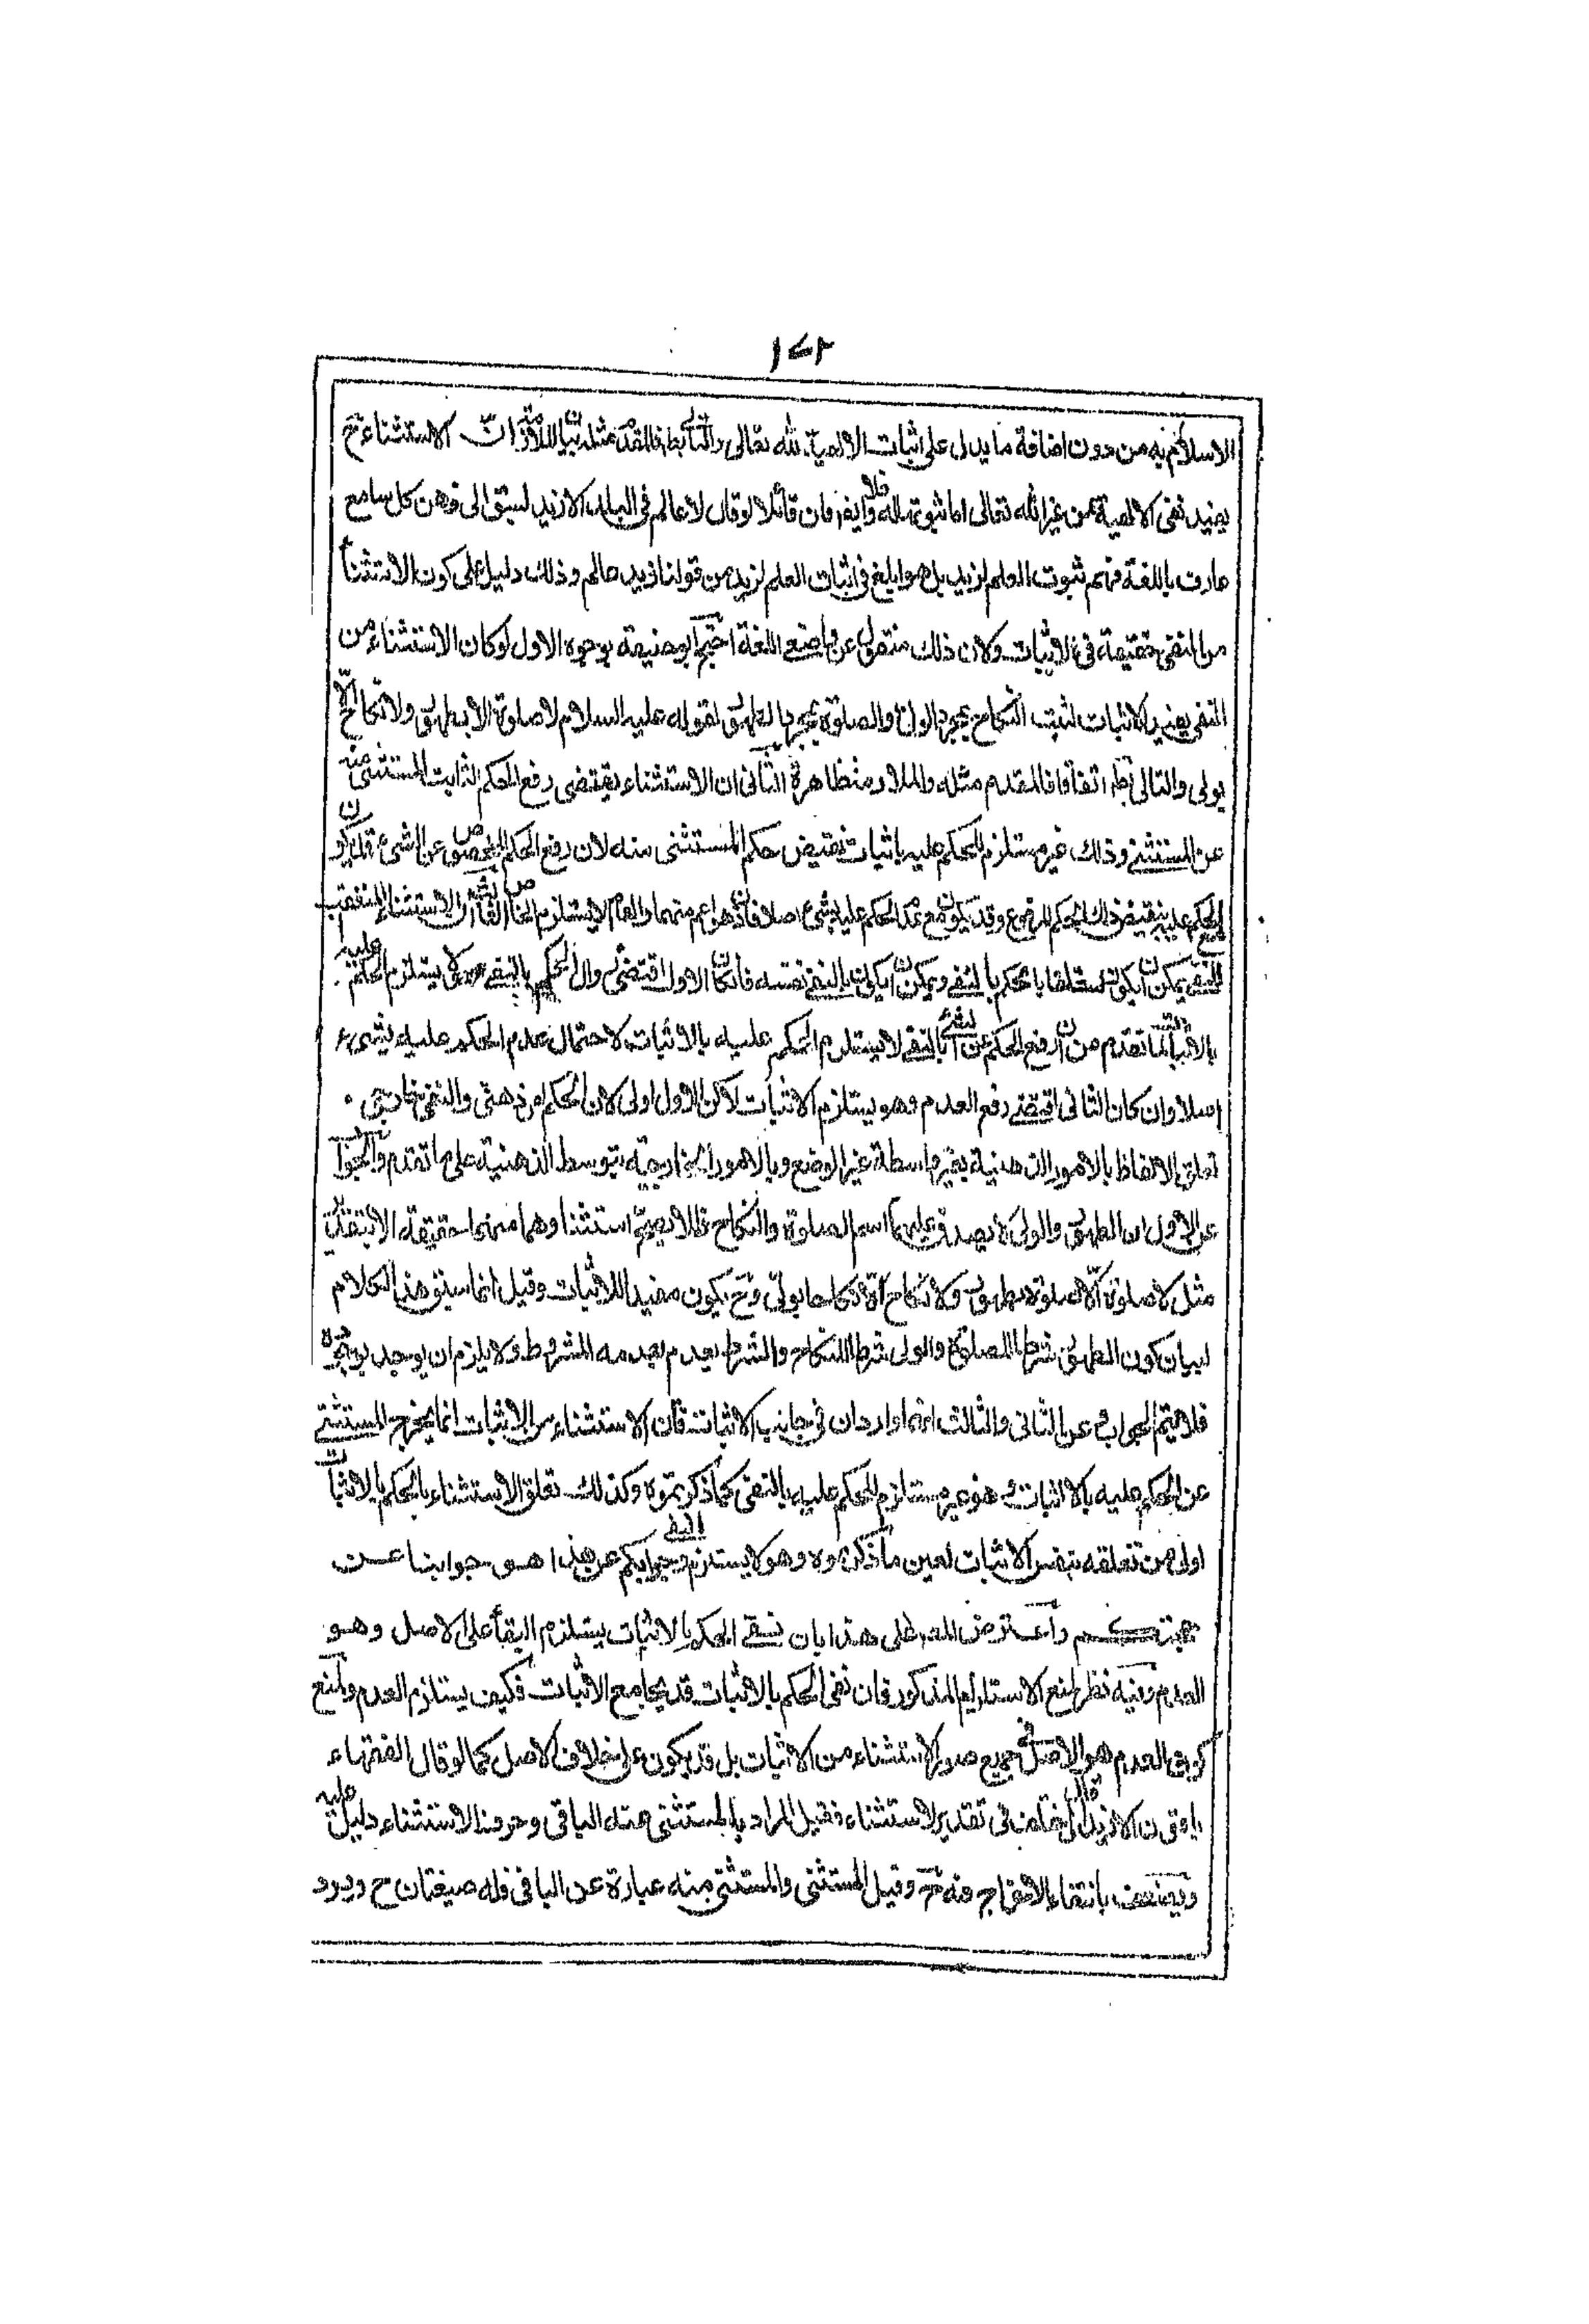 ١٧٢
الاسلام به من دون اضافة ما يدل على اثبات الالهية لله تعالى والتالى بط فالمقدم مثله بيان الملازمة ان الاستثناء ح
يفيد نفى الالهية عن غير الله تعالى اما ثبوتها له فلا وايضا فان قائلا لو قال لا عالم فى البلد الا زيد لسبق الى ذهن كل سامع
عارف باللغة فهم ثبوت العلم لزيد بل هو ابلغ فى اثبات العلم لزيد من قولنا زيد عالم وذلك دليل على كون الاستثناء
من النفى حقيقة فى الاثبات ولان ذلك منقول عن واضع اللغة احتج ابو حنيفة بوجوه الاول لو كان الاستثناء من
النفى يفيد الاثبات لثبت النكاح بمجرد الولى والصلوة بمجرد الطهور لقوله عليه السلام لا صلوة الا بطهور ولا نكاح الا
بولى والتالى بط اتفاقا فالمقدم مثله والملازمة ظاهرة الثانى ان الاستثناء يقتضى رفع الحكم الثابت للمستثنى منه
عن المستثنى وذلك غير مستلزم للحكم عليه باثبات نقيض حكم المستثنى منه لان رفع الحكم المخصوص عن الشئ قد يكون
للحكم عليه بنقيض ذلك الحكم المرفوع وقد يكون مع عدم الحكم عليه بشئ اصلا فاذن هو اعم منهما والعام لا يستلزم الخاص الثالث ان الاستثناء المتعقب
للنفى يمكن ان يكون متعلقا بالحكم بالنفى ويمكن ان يكون بالنفى نفسه فان كان الاول اقتضى زوال الحكم بالنفى وهو لا يستلزم الحكم عليه
بالاثبات لما تقدم من ان رفع الحكم عن الشئ بالنفى لا يستلزم الحكم عليه بالاثبات لاحتمال عدم الحكم عليه بشئ
اصلا وان كان الثانى اقتضى رفع العدم وهو يستلزم الاثبات لكن الاول اولى لان الحكم امر ذهنى والنفى خارجى
تعلق الالفاظ بالامور الذهنية بغير واسطة غير الوضع وبالامور الخارجية بتوسط الذهنية على ما تقدم والجواب
عن الاول ان الطهور والولى لا يصدق عليهما اسم الصلوة والنكاح فلا يصح استثناوهما منهما حقيقة الا بتقدير
مثل لا صلوة الا صلوة بطهور ولا نكاح الا نكاحا بولى وح يكون مفيدا للاثبات وقيل انما سيق هذا الكلام
لبيان كون الطهور شرطا للصلوة والولى شرطا للنكاح والشرط يعدم بعدمه المشروط ولا يلزم ان يوجد بوجوده
فلا يتم الجواب عن الثانى والثالث انهما واردان فى جانب الاثبات فان الاستثناء من الاثبات انما يخرج المستثنى
عن الحكم عليه بالاثبات وهو غير مستلزم للحكم عليه بالنفى كما ذكرتموه وكذلك تعلق الاستثناء بالحكم بالاثبات
اولى من تعلقه بنفس الاثبات لعين ما ذكرتموه وهو لا يستلزم النفى وجوابكم عن هذا هو جوابنا عن
حجتكم واعترض المص على هذا بان نفى الحكم بالاثبات يستلزم البقاء على الاصل وهو
العدم وفيه نظر لمنع الاستلزام المذكور فان نفى الحكم بالاثبات قد يجامع الاثبات فكيف يستلزم العدم ولمنع
كون العدم هو الاصل فى جميع صور الاستثناء من الاثبات بل قد يكون على خلاف الاصل كما لو قال الفقهاء
باقون الا زيدا قال اختلف فى تقدير الاستثناء فقيل المراد بالمستثنى منه الباقى وحرف الاستثناء دليل عليه
ويضعف بانتفاء الاخراج منه ح وقيل المستثنى والمستثنى منه عبارة عن الباقى فله صيغتان ح ويرد